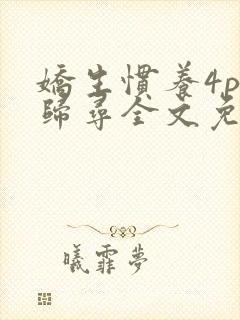 嬌生慣養4p
歸尋全文免
曦霏夢